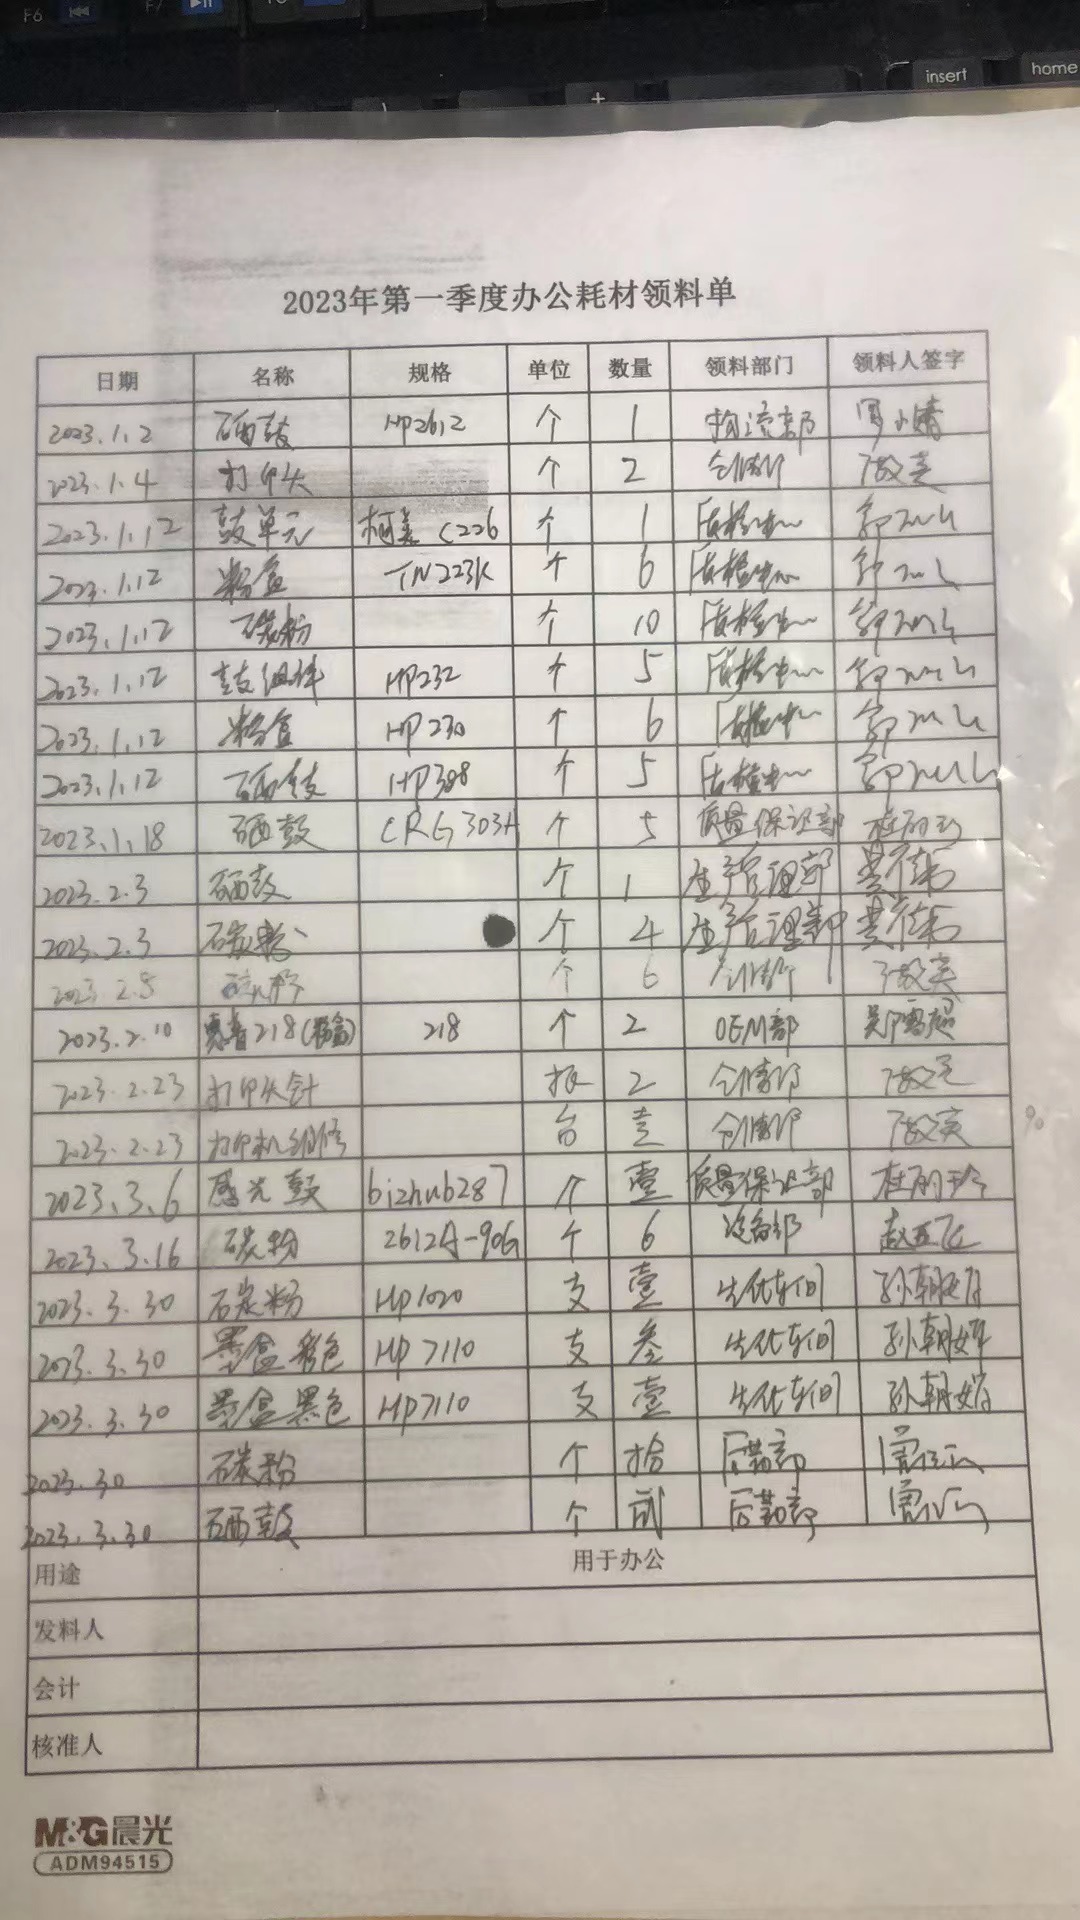 F6
F7
insert
home
2023年第一季度办公耗材领料单
日期 名称 规格 单位 数量 领料部门 领料人签字
2023.1.2 硒鼓 HP2612 个 1 物流部
2023.1.4 打印头 个 2 仓储部
2023.1.12 鼓单元 柯美 C226 个 1 质检中心
2023.1.12 粉盒 TN223K 个 6 质检中心
2023.1.12 碳粉 个 10 质检中心
2023.1.12 鼓组件 HP232 个 5 质检中心
2023.1.12 粉盒 HP230 个 6 质检中心
2023.1.12 硒鼓 HP388 个 5 质检中心
2023.1.18 硒鼓 CRG303A 个 5 质量保证部 杜丽珍
2023.2.3 硒鼓 个 1 生产管理部
2023.2.3 碳粉 个 4 生产管理部
2023.2.8 个 6 仓储部
2023.2.10 惠普218(粉盒) 218 个 2 OEM部
2023.2.23 打印头针 根 2 仓储部
2023.2.23 打印机维修 台 壹 仓储部
2023.3.6 感光鼓 bizhub287 个 壹 质量保证部 杜丽珍
2023.3.16 碳粉 2612A-90G 个 6 设备部 赵亚飞
2023.3.30 碳粉 Hp1020 支 壹 生化车间
2023.3.30 墨盒 彩色 Hp7110 支 叁 生化车间
2023.3.30 墨盒 黑色 Hp7110 支 壹 生化车间
2023.30 碳粉 个 拾 后勤部
2023.3.30 硒鼓 个 贰 后勤部
用途 用于办公
发料人
会计
核准人
M&G晨光
ADM94515